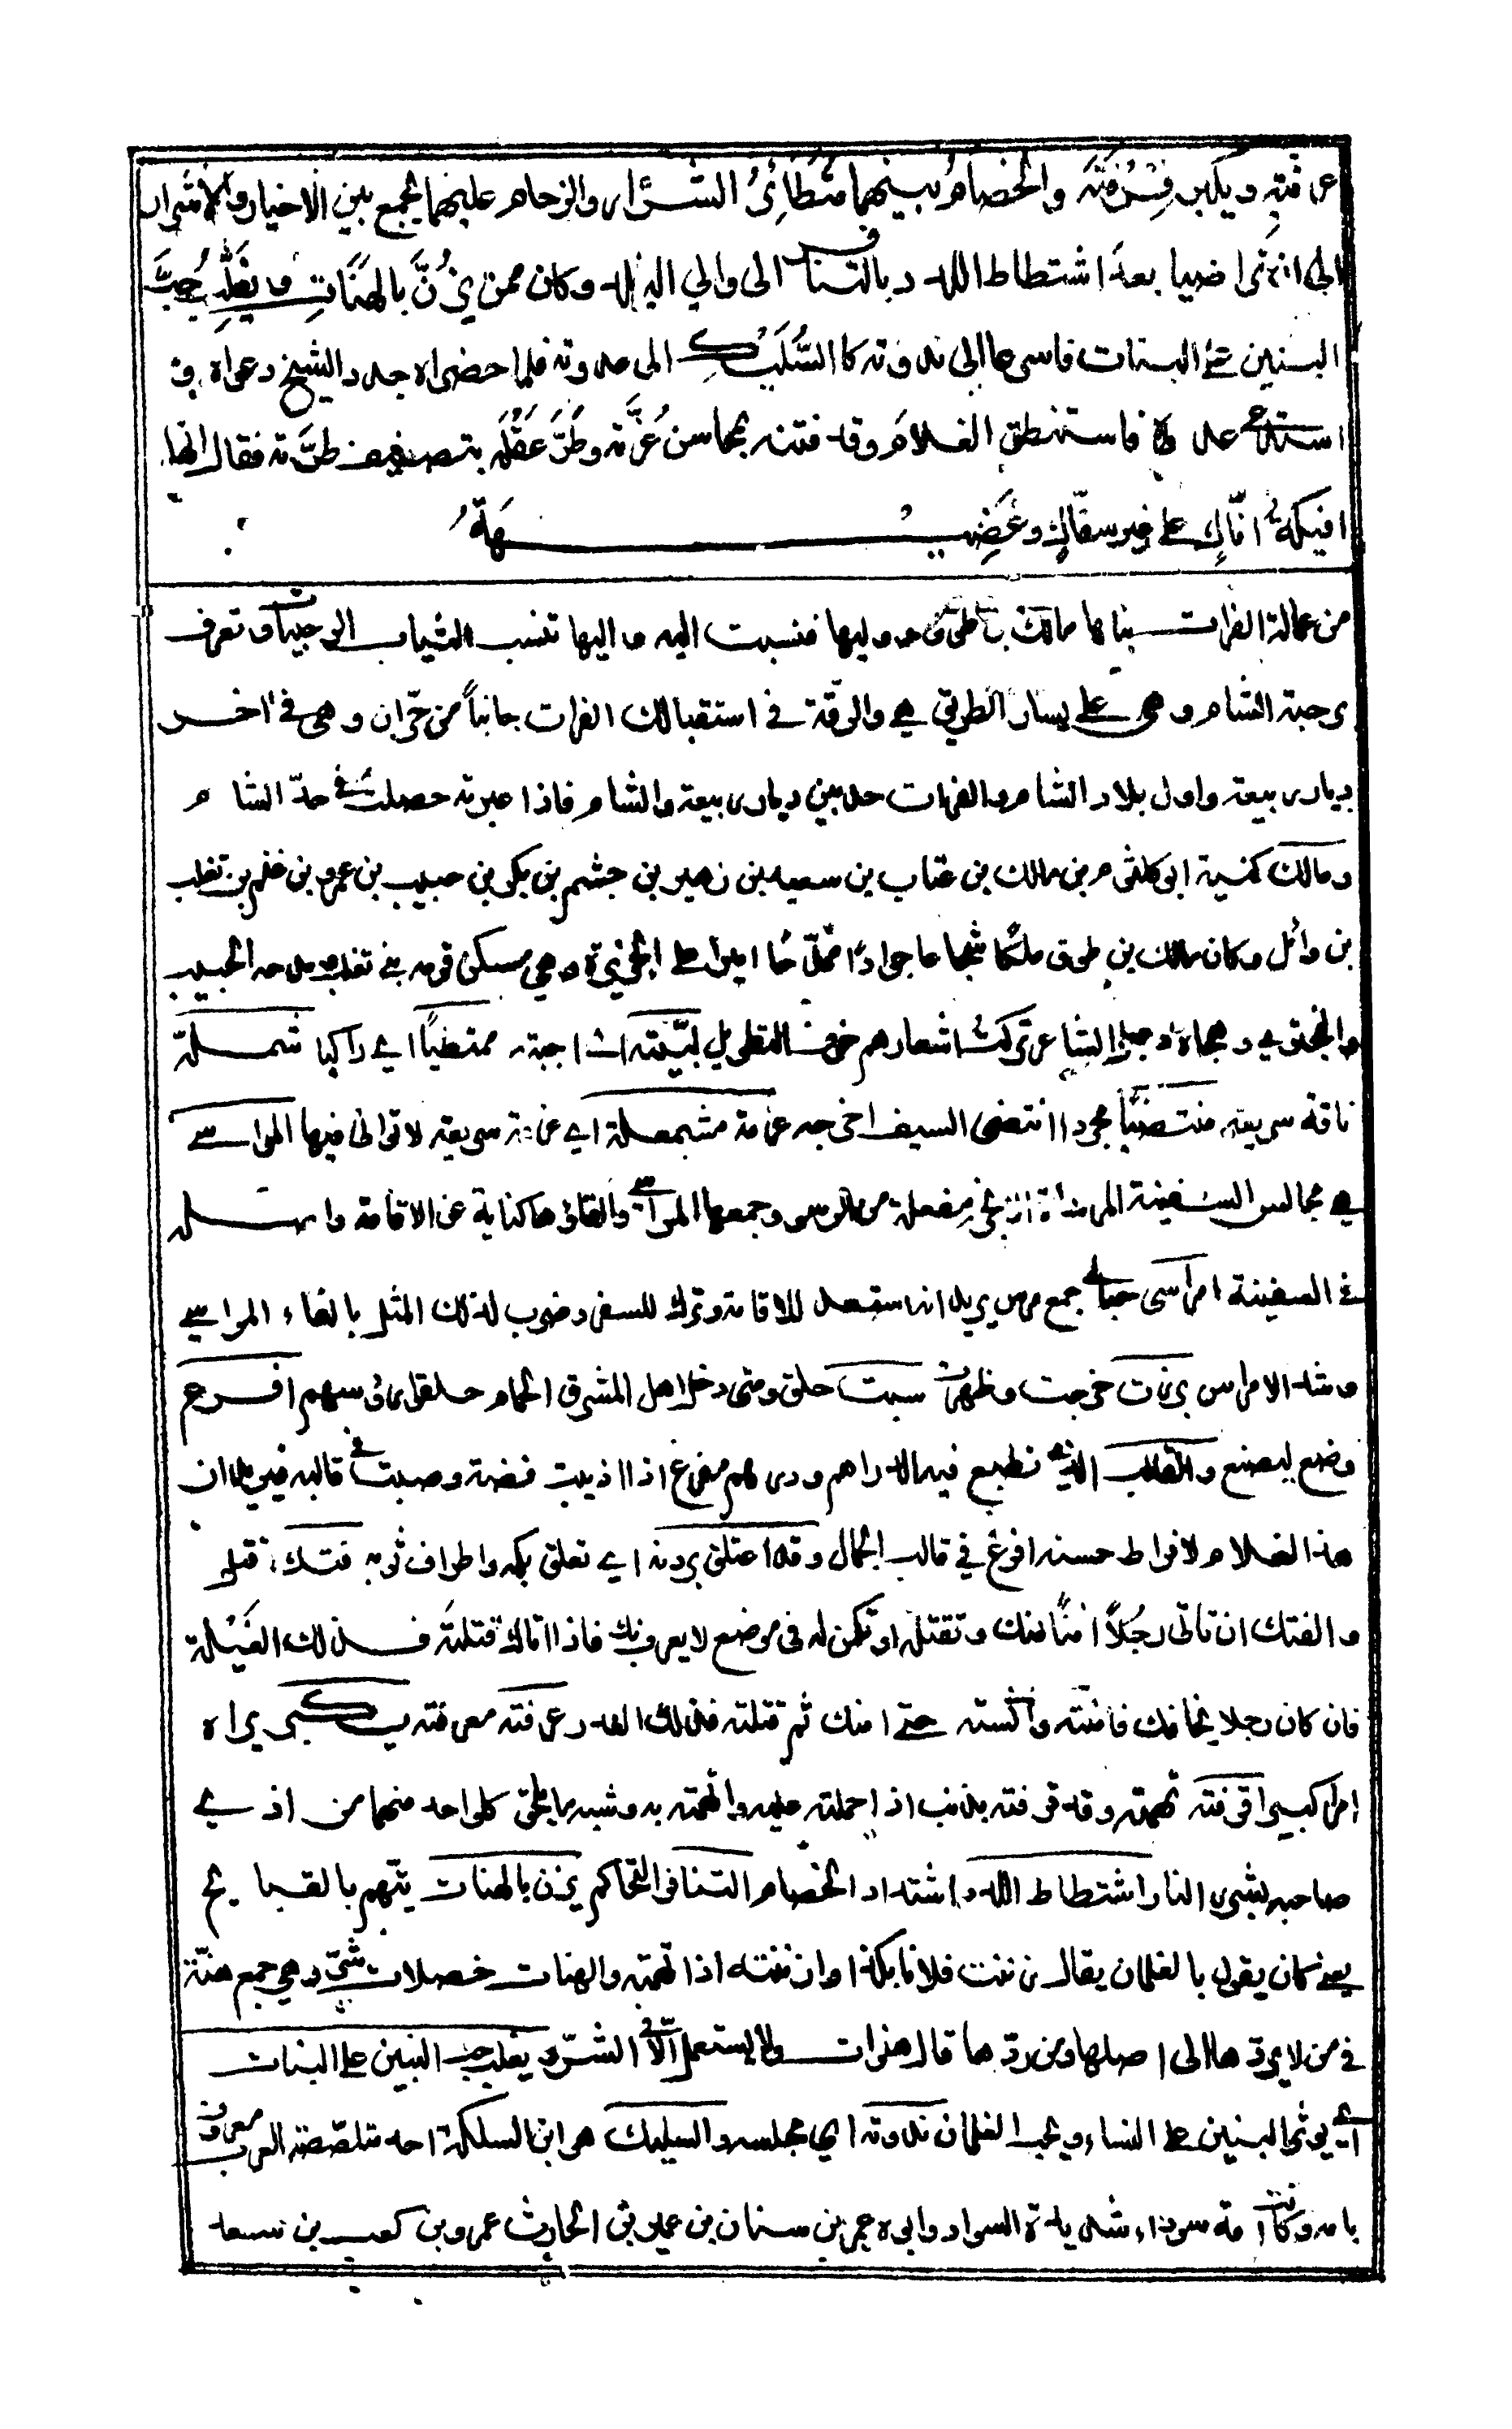 عرفته ويكبر قِرْفَتَه والخصامُ بينهما متطائِرُ الشرار والزحام عليهما يجمع بين الاخيار والاشرار
الى ان تراضيا بعد اشتطاط اللدد بالتنافر الى والي البلد وكان ممن يُزَنُّ بالهَنَاتِ ويغلِّب حُبَّ
البنين على البنات فاسرعا الى ندوته كالسُّلَيْكِ الى عدوته فلما حضراه جدد الشيخ دعواه و
استدعى عدواه فاستنطق الغلامَ وقد فتنه بمحاسن غُرَّته وطَرَّ عَقْلَه بتصفيف طُرَّته فقال انها
افيكةُ افّاكٍ على غير سفّاكٍ وعَضِيهَةُ
من عمالة الفرات بناها مالك بن طوق ووليها فنسبت اليه واليها تنسب الثياب الرحبيات وتعرف
برحبة الشام وهي على يسار الطريق هي والرقّة في استقبالك الفرات جانباً من حرّان وهي في اخر
ديار ربيعة واول بلاد الشام والفرات حد بين ديار ربيعة والشام فاذا عبرته حصلت في حدّ الشام
ومالك كنيته ابو كلثوم بن مالك بن عتاب بن سعد بن زهير بن جشم بن بكر بن حبيب بن عمرو بن غنم بن تغلب
بن وائل وكان مالك بن طوق ملكًا شجاعا جوادًا ممدّحًا اميرا على الجزيرة وهي مسكن قومه بني تغلب مدحه الحبيب
والبحتري وهجاه دعبل الشاعر تركت اشعارهم خوف التطويل لبّيته اجبته ممتطياً اي راكبا شملة
ناقة سريعة منتضيًا مجردا انتضى السيف اخرجه عزمة مشمعلة اي عزمة سريعة لا توانى فيها المراسي
هي مجالس السفينة المرساة الانجر مفعلة من الرسو وجمعها المراسي والقاؤها كناية عن الاقامة واصله
في السفينة امراسي حبالي جمع مرس يريد انه استعد للاقامة وترك للسفر وضرب لذلك المثل بالقاء المراسي
وشد الامراس برزت خرجت وظهرت سبت حلق ومتى دخل اهل المشرق الحمام حلقوا رؤسهم افرغ
وضع ليصنع والقالب الذي تطبع فيه الدراهم ودرهم مفرغ اذا اذيبت فضة وصبت في قالبه فيريد ان
هذا الغلام لافراط حسنه افرغ في قالب الجمال وقد اعتلق بردنه اي تعلق بكمه واطراف ثوبه فتك قتل
والفتك ان تاتى رجُلاً امنًا منك وتقتله او تكمن له في موضع لا يعرفونك فاذا اتاك قتلته فذلك الغَيْلة
فان كان رجلا يخافك فامّنته وانسته حتى امنك ثم قتلته فذلك الغدر عرفته معرفته يكبر يراه
امرا كبيرا قرفته تهمته وقد قرفته بذنب اذا حملته عليه واتهمته به وشبه ما يلحق كل واحد منهما من اذى
صاحبه بشرر النار اشتطاط اللدد اشتداد الخصام التنافر التحاكم يزن بالهنات يتهم بالقبايح
يعني كان يقول بالغلمان يقال زننت فلانا بكذا وازننته اذا اتهمته والهنات خصلات شرّ وهي جمع هنة
في من لا يردّها الى اصلها ومن ردّها قال هنوات ولا يستعمل الا في الشرّ ويغلب حب البنين على البنات
اي يوثر البنين على النساء ويحب الغلمان ندوته اي مجلسه والسليك هو ابن السلكة احد متلصّصة العرب معروف
بامه وكانت امة سوداء شديدة السواد وابوه عمير بن سنان بن عمير بن الحارث عمرو بن كعب بن سعد